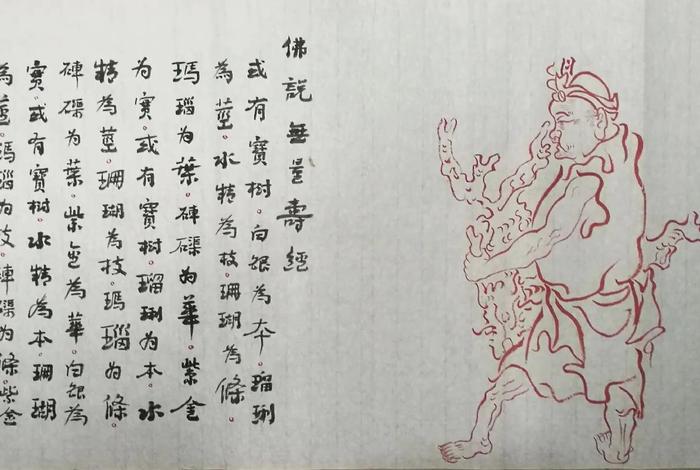 佛說無量壽經
或有寶樹。白銀為本。瑠璃
為莖。水精為枝。珊瑚為條。
瑪瑙为葉。硨磲为華。紫金
为實。或有寶樹。瑠璃为本。水
精為莖。珊瑚為枝。瑪瑙为條。
硨磲为葉。紫金為華。白銀為
實。或有寶樹。水精為本。珊瑚
為莖。瑪瑙为枝。硨磲为條。紫金